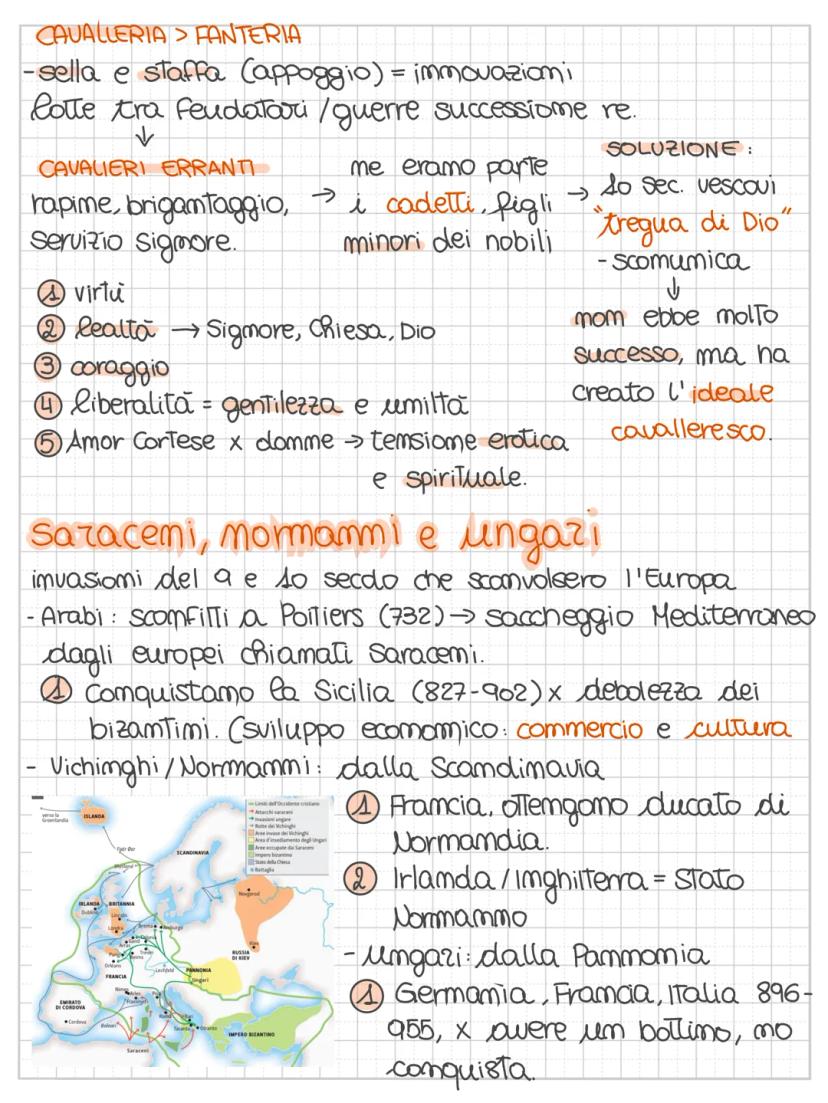 CAVALLERIA > FANTERIA
- sella e staffa (appoggio) = innovazioni
lotte tra feudatari / guerre successione re.
↓
CAVALIERI ERRANTI
rapine, brigantaggio,
servizio signore.
→ ne erano parte
i cadetti, figli
minori dei nobili
→ SOLUZIONE:
10 sec. vescovi
"tregua di Dio"
- scomunica
↓
non ebbe molto
successo, ma ha
creato l'ideale
cavalleresco.
1 virtù
2 lealtà → Signore, Chiesa, Dio
3 coraggio
4 liberalità = gentilezza e umiltà
5 Amor Cortese x donne → tensione erotica
e spirituale.
saraceni, normanni e ungari
invasioni del 9 e 10 secolo che sconvolsero l'Europa
- Arabi: sconfitti a Poitiers (732) → saccheggio Mediterraneo
dagli europei chiamati saraceni.
1 Conquistano la Sicilia (827-902) x debolezza dei
bizantini. (sviluppo economico: commercio e cultura
- Vichinghi / Normanni: dalla Scandinavia
1 Francia, ottengono ducato di
Normandia.
2 Irlanda / Inghilterra = Stato
Normanno
- Ungari: dalla Pannonia
1 Germania, Francia, Italia 896-
955, x avere un bottino, no
conquista.
Limiti dell'Occidente cristiano
Attacchi saraceni
Invasioni ungare
Rotte dei Vichinghi
Aree invase dai Vichinghi
Area d'insediamento degli Ungari
Aree occupate dai Saraceni
Impero bizantino
Stato della Chiesa
Battaglia
verso la
Groenlandia
ISLANDA
Fær Øer
Shetland
SCANDINAVIA
Novgorod
IRLANDA
BRITANNIA
Dublino
Lincoln
Londra
Amburgo
Treviri
Reims
Orléans
Kiev
RUSSIA
DI KIEV
Lechfeld
PANNONIA
Ungari
FRANCIA
Nimes
Arles
EMIRATO
DI CORDOVA
Cordova
Baleari
Roma
Bari
Taranto
Otranto
IMPERO BIZANTINO
Saraceni